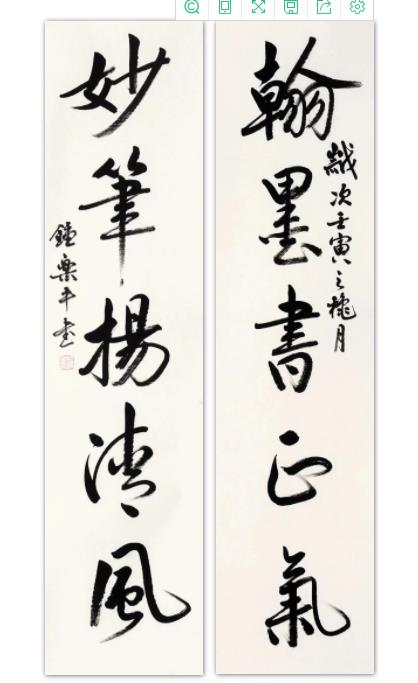 翰墨書正氣
歲次壬寅之月
妙筆揚清風
鍾樂平書